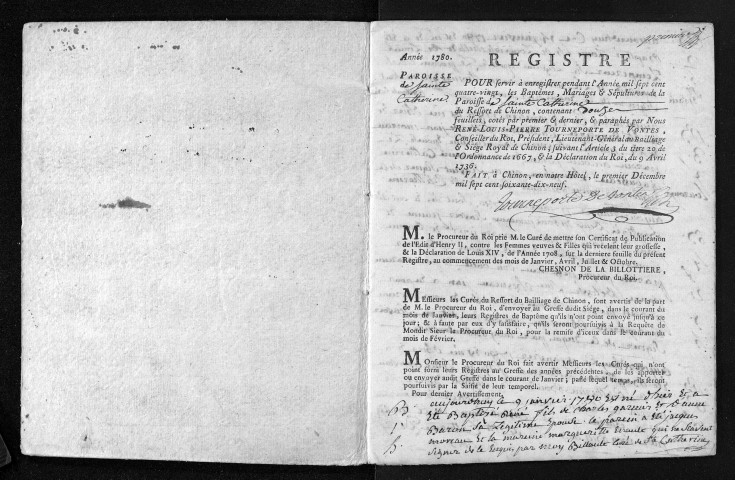 Année 1780.
REGISTRE
PAROISSE
de Sainte
Catherine
POUR servir à enregistrer pendant l'Année mil sept cent
quatre-vingt, les Baptêmes, Mariages & Sépultures de la
Paroisse de Sainte Catherine
du Ressort de Chinon, contenant douze
feuillets, cotés par premier & dernier, & paraphés par Nous
RENÉ-LOUIS-PIERRE TOURNEPORTE DE VONTES,
Conseiller du Roi, Président, Lieutenant-Général au Bailliage
& Siége Royal de Chinon; suivant l'Article 3 du titre 20 de
l'Ordonnance de 1667, & la Déclaration du Roi, du 9 Avril
1736.
FAIT à Chinon, en notre Hôtel, le premier Décembre
mil sept cent soixante-dix-neuf.
Tourneporte de Vontes
M. le Procureur du Roi prie M. le Curé de mettre son Certificat de Publication
de l'Edit d'Henry II, contre les Femmes veuves & Filles qui recèlent leur grossesse,
& la Déclaration de Louis XIV, de l'Année 1708, sur la dernière feuille du présent
Registre, au commencement des mois de Janvier, Avril, Juillet & Octobre.
CHESNON DE LA BILLOTTIERE,
Procureur du Roi.
MEssieurs les Curés du Ressort du Bailliage de Chinon, sont avertis de la part
de M. le Procureur du Roi, d'envoyer au Greffe dudit Siége, dans le courant du
mois de Janvier, leurs Registres de Baptême qu'ils n'ont point envoyé jusqu'à ce
jour; & à faute par eux d'y satisfaire, qu'ils seront poursuivis à la Requête de
Mondit Sieur le Procureur du Roi, pour la remise d'iceux dans le courant du
mois de Février.
MOnsieur le Procureur du Roi fait avertir Messieurs les Curés qui n'ont
point fourni leurs Registres au Greffe des années précédentes, de les apporter
ou envoyer audit Greffe dans le courant de Janvier; passé lequel temps, ils seront
poursuivis par la Saisie de leur temporel.
Pour dernier Avertissement.
aujourdhuy le 9 janvier 1780 est né d'hier et a
été Baptisé René fils de charles et d'anne
Baricn sa legitime Epouse le parein a été jacque
moreau et la mareine marguerite qui ne scavent
signer de ce enquis par moy Billault Curé de Ste Catherine